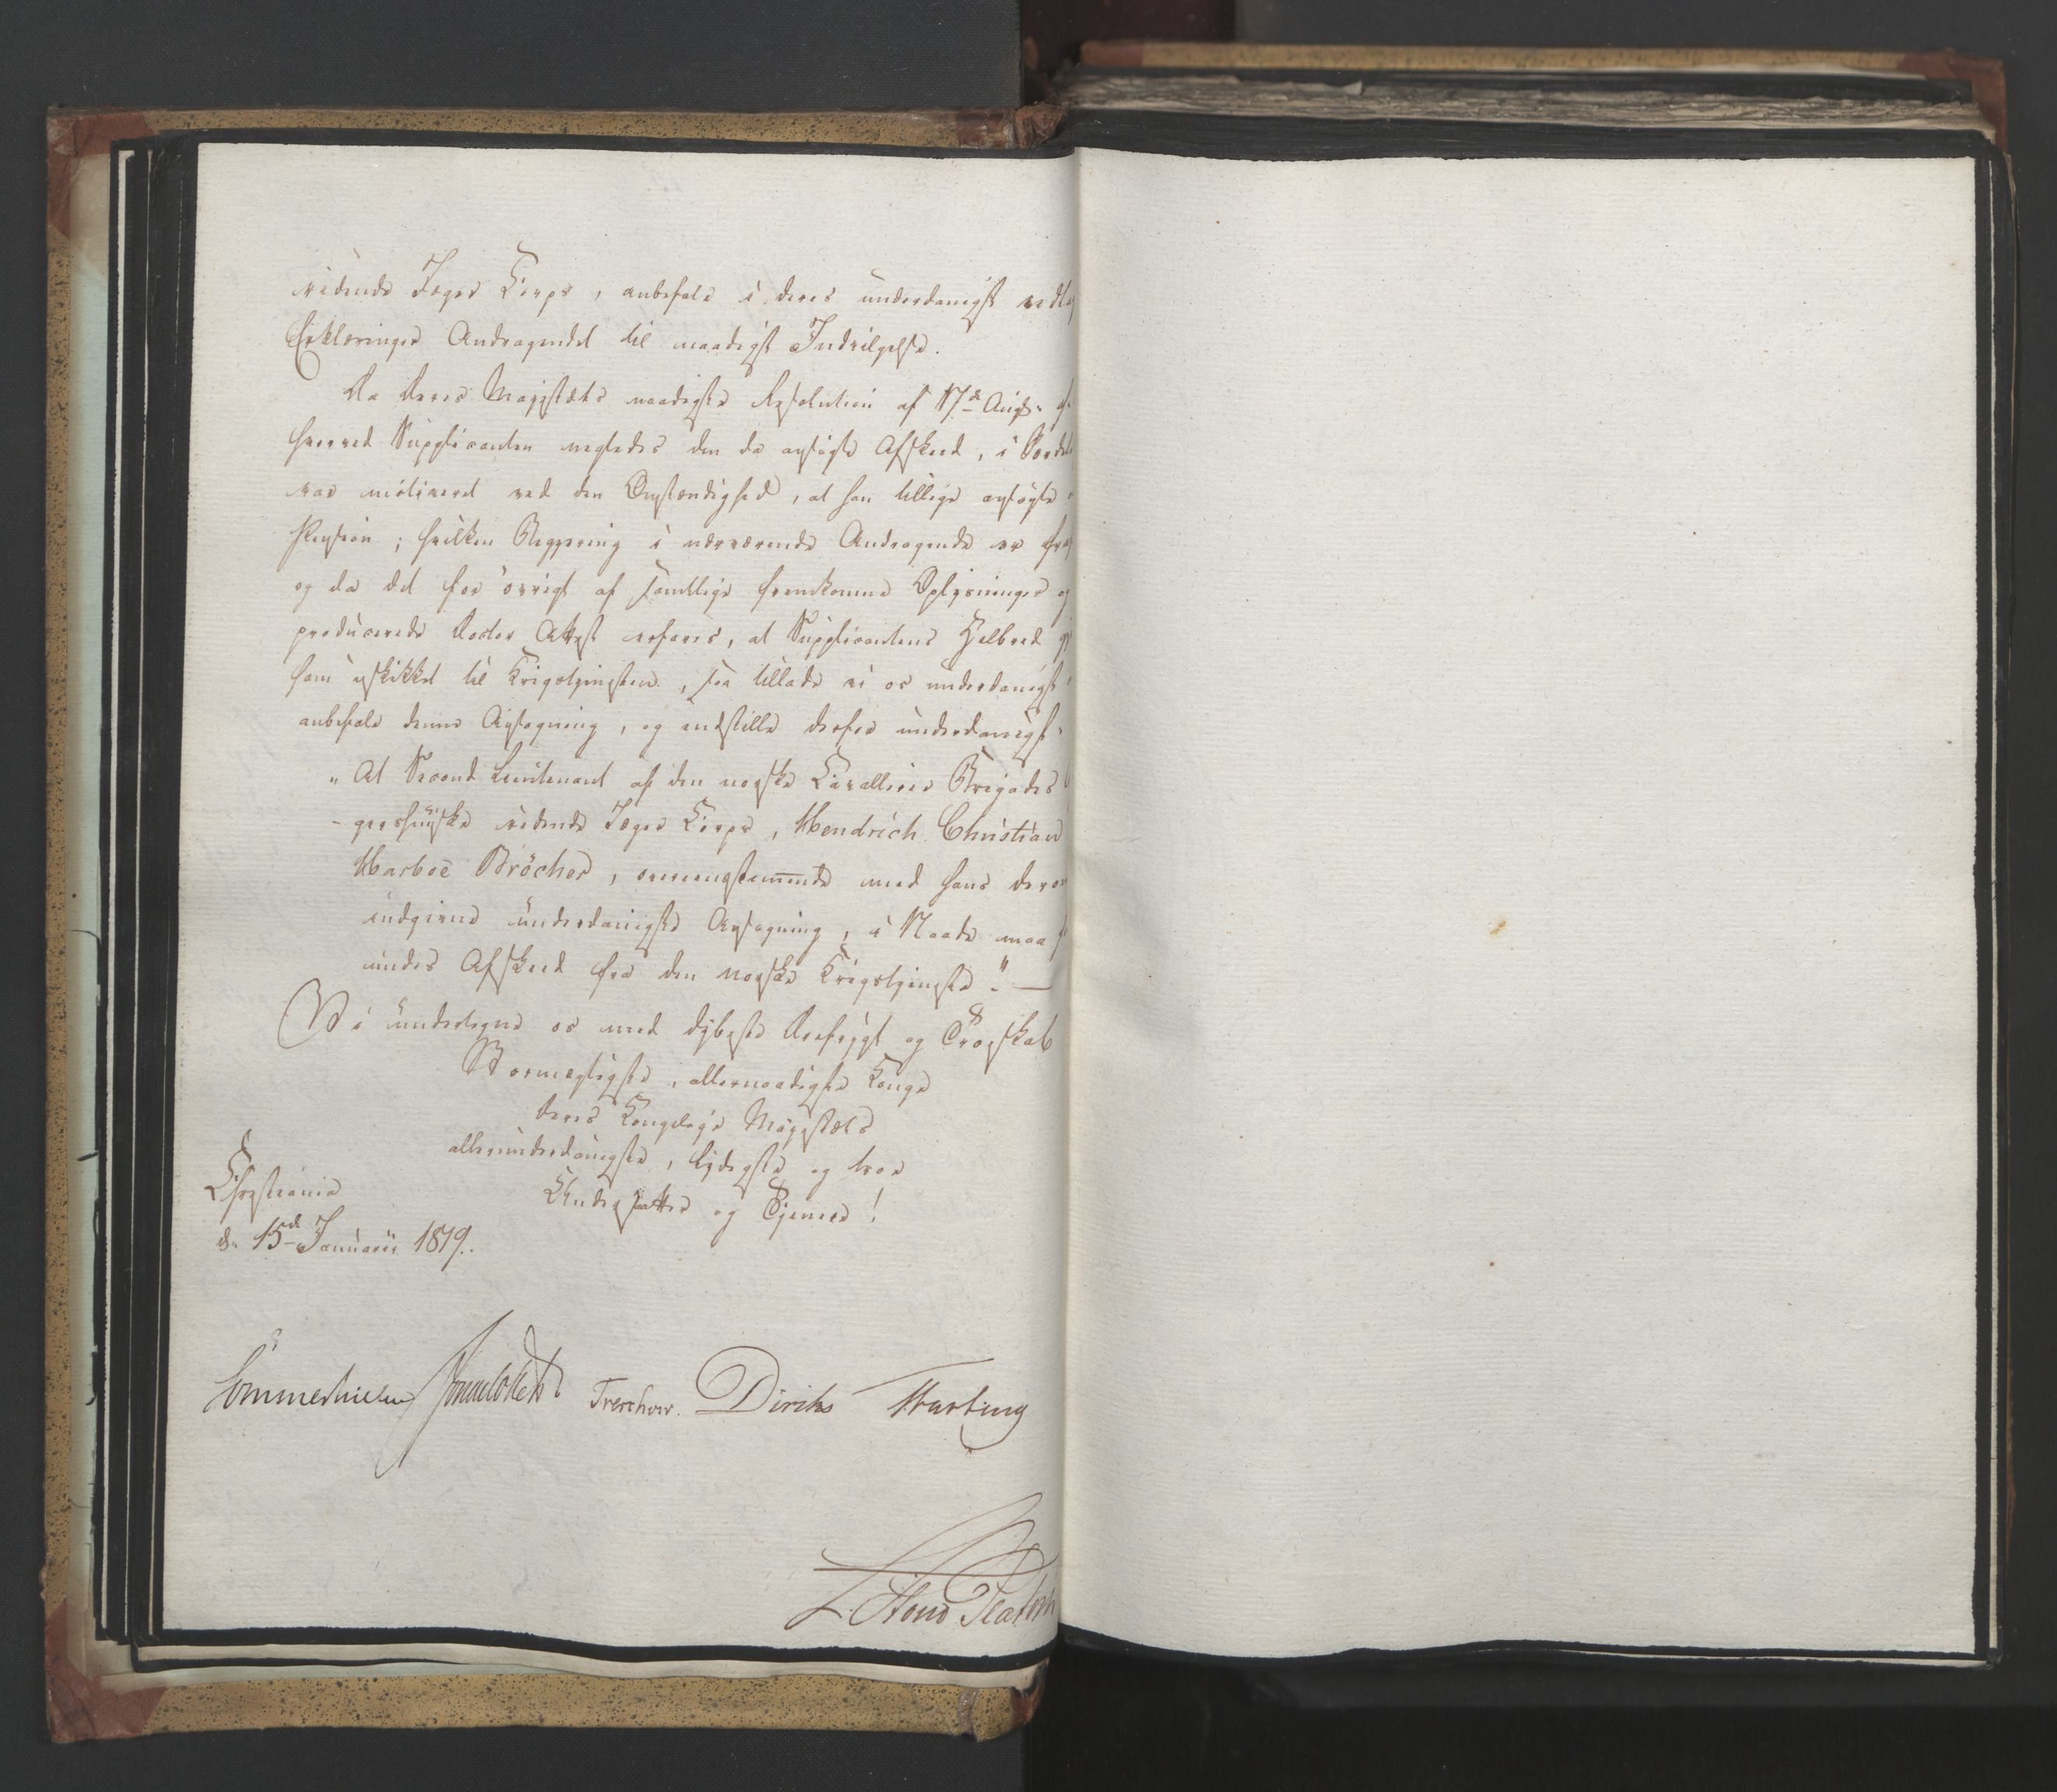 ridende Jæger Corps, anbefale i deres underdanigst vedlag
Erklæringer Andragendet til naadigst Indvilgelse.
Da Deres Majestæts naadigste Resolution af 17de Augst.
hvorved Supplicanten negtedes den da ansøgte Afskeed, i
var motiveret ved den Omstændighed, at han tillige ansøgte
Pension; hvilken Begjæring i nærværende Andragende er
og da det for øvrigt af samtlige fremkomne Oplysninger og
producerede Doctor Attest erfares, at Supplicantens Helbred
ham uskikket til Krigstjenesten, saa tillade vi os underdanigst
anbefale denne Ansøgning, og indstille derfor underdanigst:
"At Second Lieutenant af den norske Cavallerie Brigades
gershuusske ridende Jæger Corps, Hendrich Christian
Harboe Bröcher, overensstemmende med hans derom
indgivne underdanigste Ansøgning, i Naade maa
undes Afskeed fra den norske Krigstjeneste". —
Vi undertegne os med dybeste Ærefrygt og Troskab
Stormægtigste, allernaadigste Konge
Deres Kongelige Majestæts
allerunderdanigste, lydigste og troe
Undersaatter og Tjenere!
Christiania
d. 15de Januarii 1819.
Sommerhielm Treschow. Diriks Krarbing
L: Stoud Platou